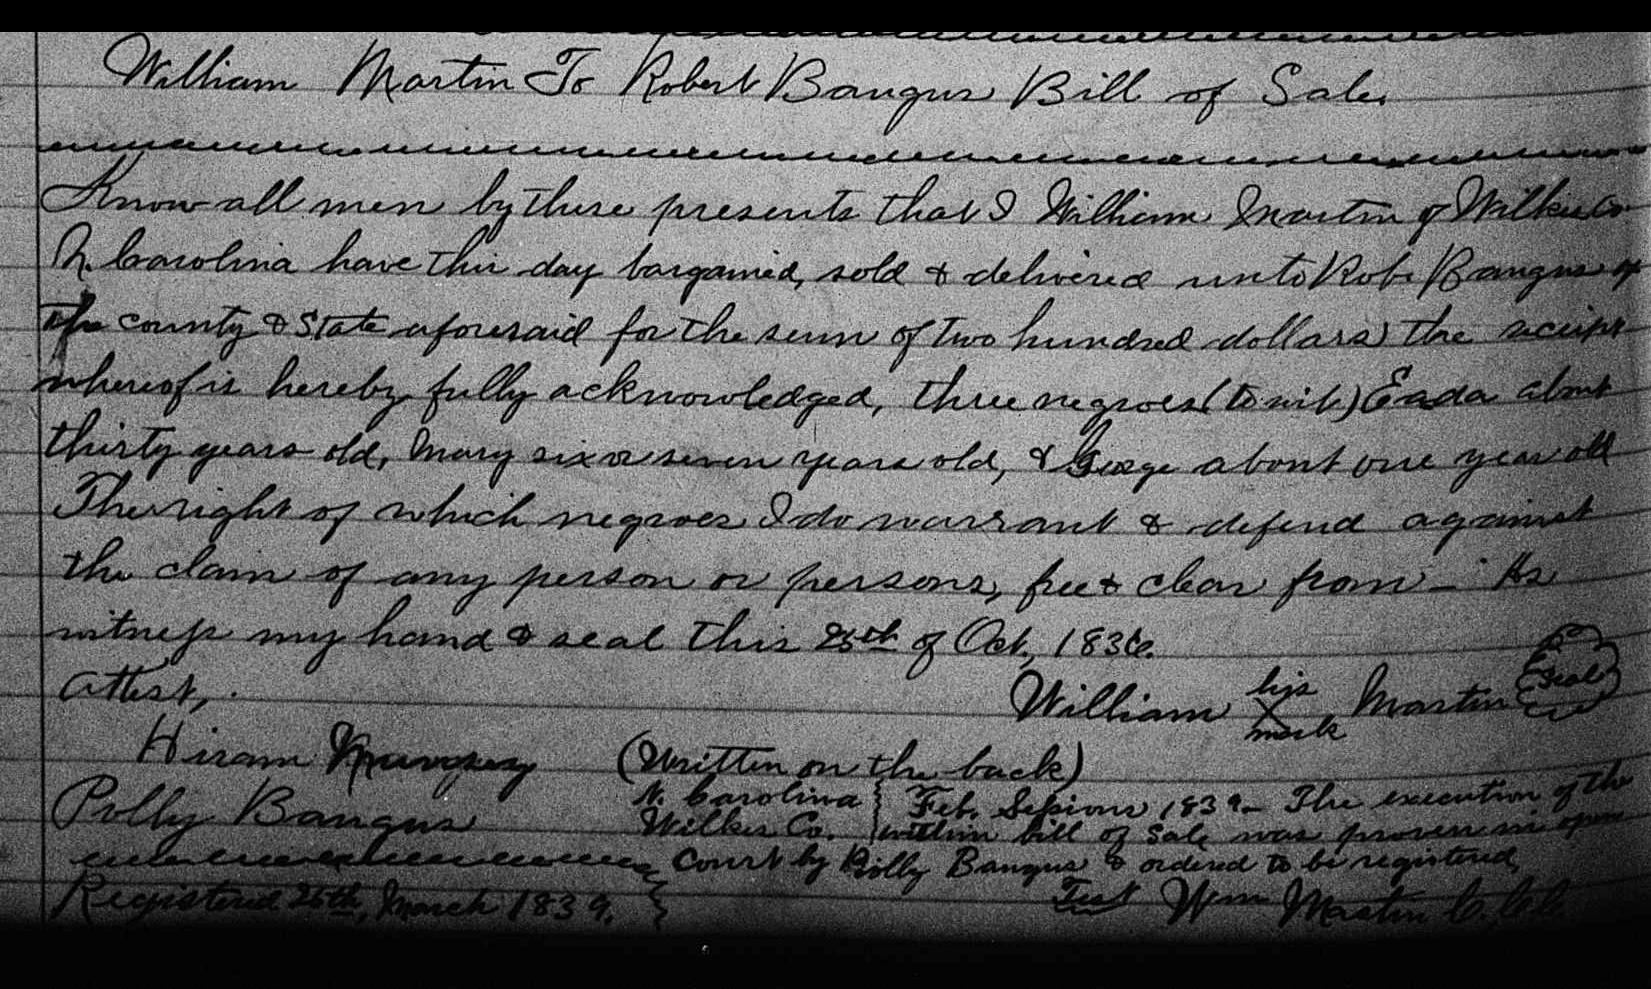 William Martin To Robert Bangus Bill of Sale.
Know all men by these presents that I William Martin of Wilkes Co.
N. Carolina have this day bargained, sold & delivered unto Robt. Bangus of
the county & State aforesaid for the sum of two hundred dollars the receipt
whereof is hereby fully acknowledged, three negroes (to wit) Eada about
thirty years old, Mary six or seven years old, & George about one year old
The right of which negroes I do warrant & defend against
the claim of any person or persons, free & clear from - As
witness my hand & seal this 25th of Oct., 1836.
Attest,
William his X mark Martin Seal
Hiram
(Written on the back)
Polly Bangus
N. Carolina } Feb. Sessions 1839 - The execution of the
Wilkes Co. } within bill of Sale was proven in open
Court by Polly Bangus & ordered to be registered,
Registered 26th, March 1839. } Test Wm Martin C.C.C.